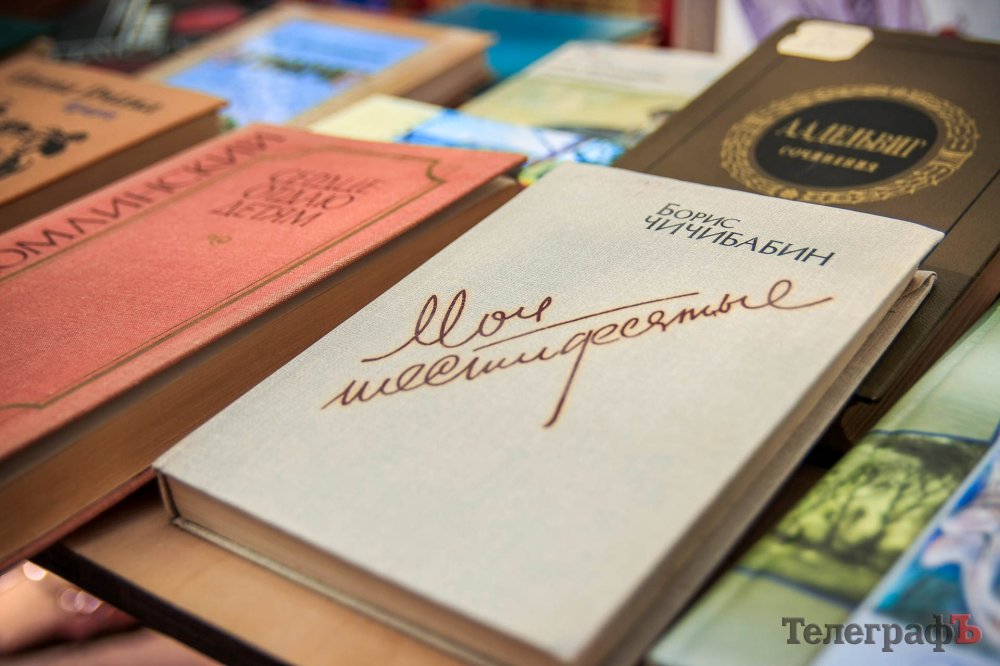 Борис
ЧИЧИБАБИН
Мои
шестидесятые
ОМЛИНСКИЙ
СЕРДЦЕ
ОТДАЮ
ДЕТЯМ
А.А.ДЕЛЬВИГ
СОЧИНЕНИЯ
ТелеграфЪ